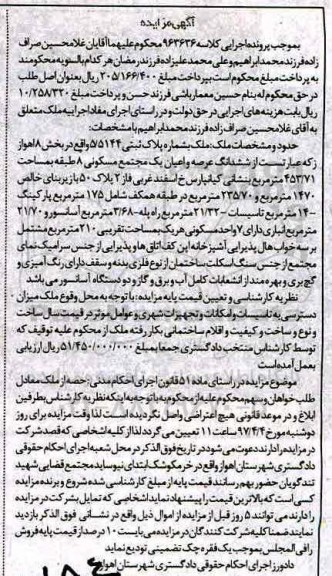 آگهی مزایده
بموجب پرونده اجرایی کلاسه ۹۶۳۶۳۶ محکوم علیهما آقایان غلامحسین صراف
زاده فرزند محمد ابراهیم وعلی محمد علیزاده فرزند رمضان هر کدام بالسویه محکومند
به پرداخت مبلغ محکوم است بپرداخت مبلغ ۲۰۵/۱۶۶/۴۰۰ ریال بعنوان اصل طلب
در حق محکوم له بنام حسین معمارباشی فرزند حسن و پرداخت مبلغ ۱۰/۲۵۸/۳۲۰
ریال بابت هزینه های اجرایی در حق دولت و در راستای اجرای مفاد اجراییه ملک متعلق
به آقای غلامحسین صراف زاده فرزند محمد ابراهیم با مشخصات:
حدود و مشخصات ملک: ملک بشماره پلاک ثبتی ۵/۵۱۴۴ واقع در بخش ۸ اهواز
که عبارتست از ششدانگ عرصه و اعیان یک مجتمع مسکونی ۸ طبقه بمساحت
۴۵۳/۷۱ مترمربع بنشانی کیانپارس خ اسفند غربی فاز ۲ پلاک ۵۰ با زیربنای خالص
۱۴۷۰ مترمربع و ۲۳۵/۷۰ مترمربع در طبقه همکف شامل ۱۷۵ مترمربع پارکینگ
-۱۴ مترمربع تاسیسات -۲۱/۳۲ مترمربع راه پله -۳/۶۸ مترمربع آسانسور و ۲۱/۷۰
مترمربع انباری دارای ۷ واحد مسکونی هریک مساحت تقریبی ۲۱۰ مترمربع مشتمل
بر سه خواب هال پذیرایی آشپزخانه این کف اتاق ها و پذیرایی از جنس سرامیک نمای
مجتمع از جنس سنگ اسکلت ساختمان از نوع فلزی بدنه و سقف دارای رنگ آمیزی و
گچ بری و بهره مند از انشعابات کامل آب و برق و گاز و دو دستگاه آسانسور می باشد
نظریه کارشناسی و تعیین قیمت پایه مزایده: با توجه به محل وقوع ملک میزان
دسترسی به تاسیسات و امکانات و تجهیزات شهری و عوامل موثر در قیمت سال ساخت
و نوع و ساخت و کیفیت و اقلام ساختمانی بکار رفته ملک از محکوم علیه توقیف که
توسط کارشناس منتخب دادگستری جمعا بمبلغ ۵۱/۴۵۰/۰۰۰/۰۰۰ ریال ارزیابی
بعمل آمده است
موضوع مزایده در راستای ماده ۵۱ قانون اجرای احکام مدنی: حصه از ملک معادل
طلب خواهان و سهم محکوم علیه از محکوم به با توجه به اینکه نظریه کارشناس بطرفین
ابلاغ و در موعد قانونی هیچ اعتراضی واصل نگردیده است لذا وقت مزایده برای روز
دوشنبه مورخ ۹۷/۴/۴ ساعت ۱۱ تعیین می گردد لذا از کلیه اشخاصی که قصد شرکت
در مزایده را دارند دعوت می شود در تاریخ فوق الذکر در محل شعبه اجرای احکام حقوقی
دادگستری شهرستان اهواز واقع در خرمکوشک ابتدای نیوساید مجتمع قضایی شهید
تندگویان حضور بهم رسانند قیمت پایه از مبلغ کارشناسی شده شروع و برنده مزایده
کسی است که بالاترین قیمت را پیشنهاد نماید اشخاصی که تمایل بشرکت در مزایده
را دارند می توانند ۵ روز قبل از مزایده از اموال ذیل واقع در نشانی فوق الذکر بازدید
نمایند ضمنا کلیه شرکت کنندگان در مزایده می بایست ۱۰ درصد از قیمت پایه فروش
را فی المجلس بموجب یک فقره چک تضمینی تودیع نماید
دادورز اجرای احکام حقوقی دادگستری شهرستان اهواز